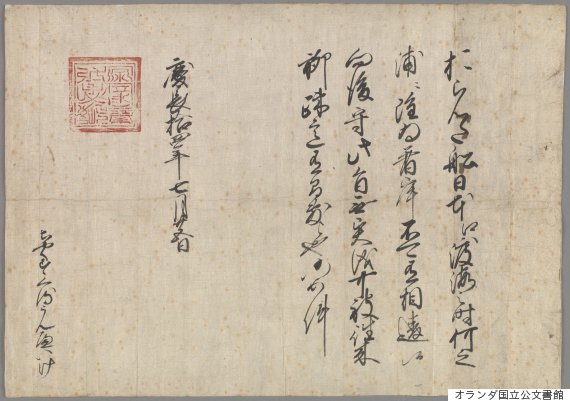 おらんた船日本江渡海之時何之
浦ニ雖為着岸不可有相違候
向後守此旨無異儀可被往来
聊疎意有間敷候也仍如件
慶長拾四年七月廿五日
オランダ国立公文書館